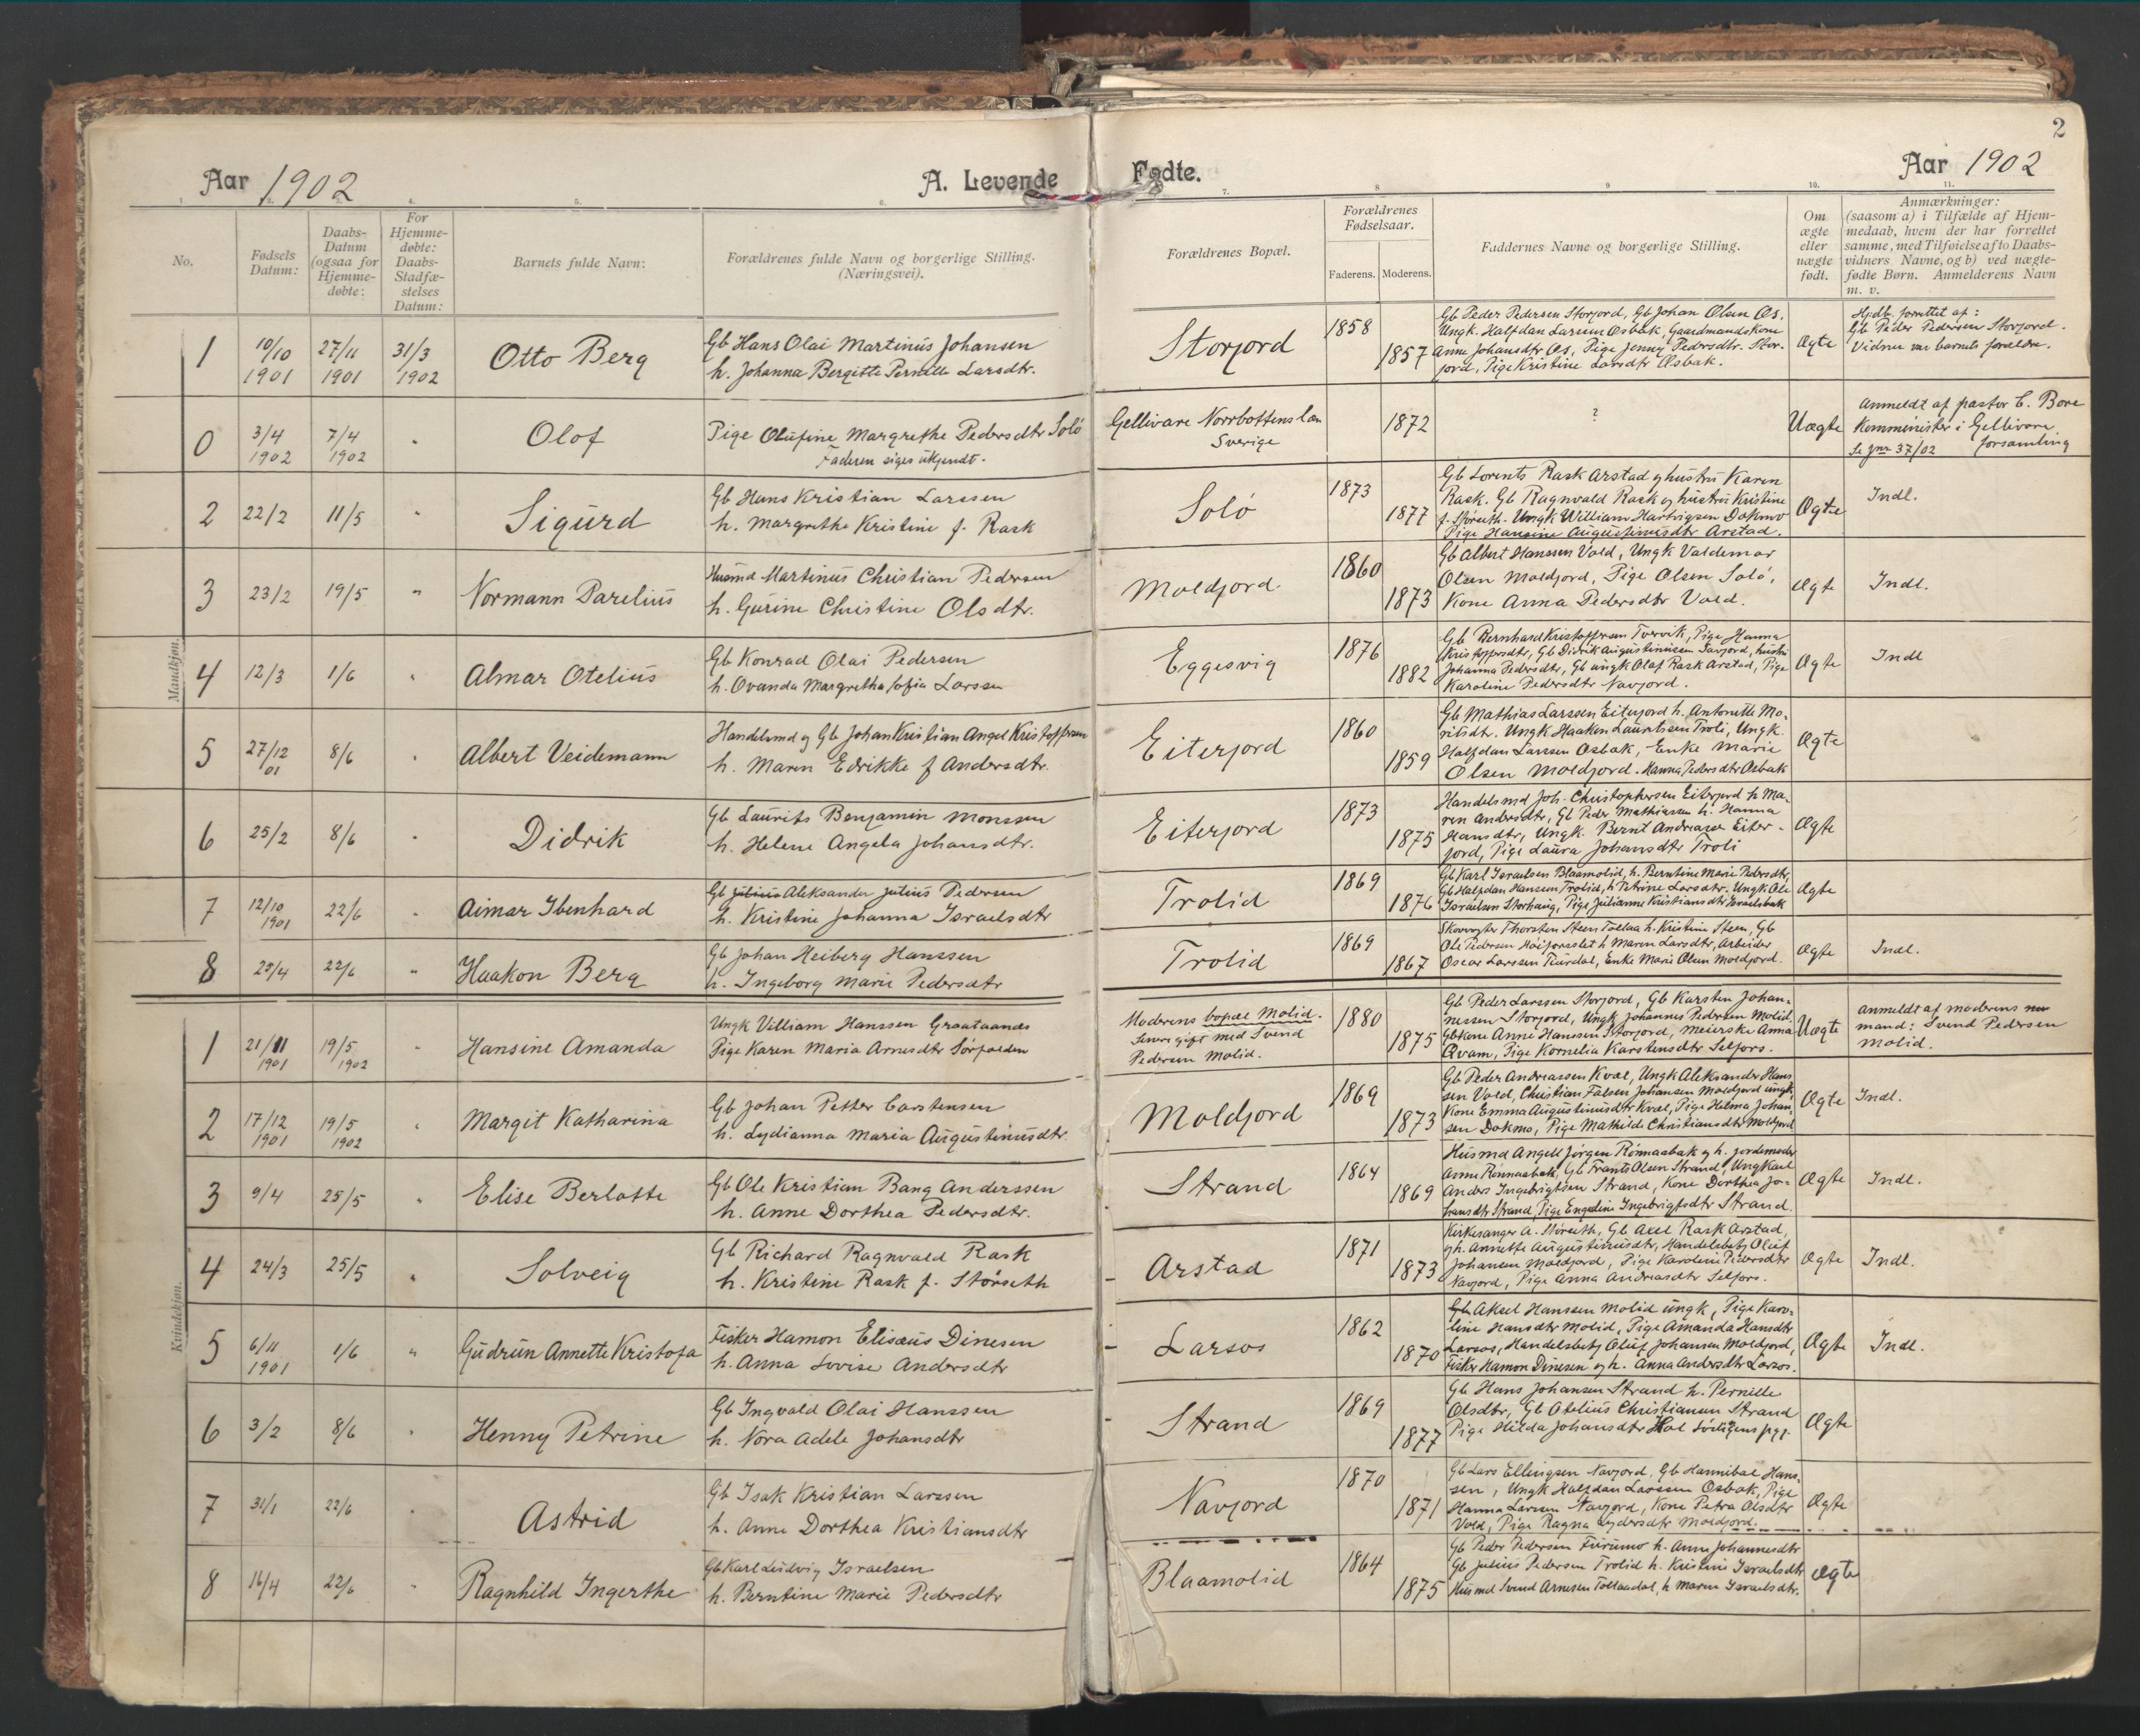 2
Aar 1902
A. Levende Fødte.
Aar 1902
1. 2. 3. 4. 5. 6. 7. 8 9 10. 11.
No.
Fødsels Datum:
Daabs-Datum (ogsaa for Hjemme-døbte:
For Hjemme-døbte: Daabs-Stadfæ-stelses Datum:
Barnets fulde Navn:
Forældrenes fulde Navn og borgerlige Stilling. (Næringsvei).
Forældrenes Bopæl.
Forældrenes Fødselsaar.
Faderens. Moderens.
Faddernes Navne og borgerlige Stilling.
Om ægte eller uægte født.
Anmærkninger: (saasom a) i Tilfælde af Hjem-medaab, hvem der har forrettet samme, med Tilføielse af to Daabs-vidners Navne, og b) ved uægte-fødte Børn. Anmelderens Navn m. v.
Mandkjøn.
1 10/10 1901 27/11 1901 31/3 1902 Otto Berg
Gb Hans Olai Martinus Johansen
h. Johanna Bergitte Pernille Larsdtr.
Storjord 1858 1857
Gb Peder Pedersen Storjord, Gb Johan Olsen Os,
Ungk. Halfdan Larsen Osbak, Gaardmandskone
Anne Johansdtr Os, Pige Jenny Pedersdtr. Stor-
jord, Pige Kristine Larsdtr Osbak.
Ægte
Hjdb. forrettet af:
Gb Peder Pedersen Storjord.
Vidner var barnets forældre.
0 3/4 1902 7/4 1902 " Olof
Pige Olufine Margrethe Pedersdtr Solö
Faderen siges ukjendt.
Gellivare Norrbottens län
Sverige
1872
?
Uægte
Anmeldt af pastor C. Bore
Komminister i Gellivare
forsamling
Se jnr 37/02
2 22/2 11/5 " Sigurd
Gb Hans Kristian Larssen
h. Margrethe Kristine f. Rask
Solö 1873 1877
Gb Lorents Rask Arstad og hustru Karen
Rask. Gb Ragnvald Rask og hustru Kristine
f. Störseth. Ungk William Hartvigsen Dokmo
Pige Hansine Augustinusdtr Arstad.
Ægte Indl.
3 23/2 19/5 " Normann Parelius
Husmd Martinus Christian Pedersen
h. Gurine Christine Olsdtr.
Moldjord. 1860 1873
Gb Albert Hanssen Vold, Ungk Valdemar
Olsen Moldjord, Pige Olsen Solö,
Kone Anna Pedersdtr Vold.
Ægte Indl.
4 12/3 1/6 " Almar Otelius
Gb Konrad Olai Pedersen
h. Ovanda Margretha Sofia Larssen
Eggesvig 1876 1882
Gb Bernhard Kristoffersen Tvervik, Pige Hanna
Kristoffersdtr, Gb Didrik Augustinussen Savjord, hustru
Johanna Pedersdtr, Gb ungk Olaf Rask Arstad, Pige
Karoline Pedersdtr Navjord.
Ægte Indl
5 27/12 01 8/6 " Albert Veidemann
Handelsmd og Gb Johan Kristian Angel Kristoffersen
h. Maren Edrikke f Andersdtr.
Eiterjord 1860 1859
Gb Mathias Larssen Eiterjord h. Antonette Mo-
ritsdtr. Ungk Haaken Lauritssen Troli, Ungk.
Halfdan Larssen Osbak, Enke Marie
Olsen Moldjord. Hanna Pedersdtr Osbak
Ægte
6 25/2 8/6 " Didrik
Gb Laurits Benjamin Monssen
h. Helene Angela Johansdtr.
Eiterjord 1873 1875
Handelsmd Joh. Christophersen Eiterjord h Ma-
ren Andersdtr, Gb Peder Mathiassen h. Hanna
Hansdtr, Ungk. Bernt Andreasen Eiter-
jord, Pige Laura Johansdtr Troli
Ægte
7 12/10 1901 22/6 " Aimar Ibenhard
Gb Julius Aleksander Julius Pedersen
h. Kristine Johanna Israelsdtr
Trolid 1869 1876
Gb Karl Israelsen Blaamolid, h. Berntine Marie Pedersdtr,
Gb Halfdan Hansen Trolid, h Petrine Larsdtr. Ungk Ole
Israelsen Storhaug, Pige Julianne Kristiansdtr Israelsbak
Ægte
8 25/4 22/6 " Haakon Berg
Gb Johan Heiberg Hanssen
h. Ingeborg Marie Pedersdtr
Trolid 1869 1867
Skovvogter Thorsten Steen Tollaa h. Kristine Steen, Gb
Ole Pedersen Höiforsslet h Maren Larsdtr, Arbeider
Oscar Larssen Tuirdal, Enke Marie Olsen Moldjord.
Ægte Indl.
Kvindekjøn.
1 21/11 1901 19/5 1902 " Hansine Amanda
Ungk Villiam Hanssen Graataanes
Pige Karen Maria Arnesdtr Sörfolden
Moderens bopæl Molid.
Senere gift med Svend
Pedersen Molid.
1880 1875
Gb Peder Larssen Storjord, Gb Karsten Johan-
nessen Storjord, Ungk Johannes Pedersen Molid,
Gbkone Anne Hanssen Storjord, meierske Anna
Qvam, Pige Kornelia Karstensdtr Selfors.
Uægte
Anmeldt af moderens
mand: Svend Pedersen
Molid.
2 17/12 1901 19/5 1902 " Margit Katharina
Gb Johan Petter Carstensen
h. Lydianna Maria Augustinusdtr.
Moldjord 1869 1873
Gb Peder Andreassen Kvæl, Ungk Aleksander Hans
sen Vold, Christian Falsen Johansen Moldjord ungk,
Kone Emma Augustinusdtr Kvæl, Pige Helma Johan-
sen Dokmo, Pige Mathilde Christiansdtr Moldjord
Ægte Indl.
3 9/4 25/5 " Elise Berlotte
Gb Ole Kristian Bang Anderssen
h. Anne Dorthea Pedersdtr.
Strand 1864 1869
Husmd Angell Jörgen Rönnaabak og h. jordemoder
Anne Rönnaabak, Gb Frants Olsen Strand, Ungkarl
Anders Ingebrigtsen Strand, Kone Dorthea Jo-
hansdtr Strand, Pige Engeline Ingebrigtsdtr Strand.
Ægte Indl.
4 24/3 25/5 " Solveig
Gb Richard Ragnvald Rask
h. Kristine Rask f. Störseth
Arstad 1871 1873
Kirkesanger A. Störseth, Gb Axel Rask Arstad,
og h. Annette Augustinusdtr, Handelsbetj Oluf
Johansen Moldjord, Pige Karoline Pedersdtr
Navjord, Pige Anna Andreasdtr Selfors.
Ægte Indl.
5 6/11 1901 1/6 " Gudrun Annette Kristofa
Fisker Hamon Elisæus Dinesen
h. Anna Lovise Andersdtr
Larsos 1862 1870
Gb Aksel Hanssen Molid ungk, Pige Karo-
line Hansdtr Molid, Pige Amanda Hansdtr
Larsos, Handelsbetj Oluf Johansen Moldjord,
Fisker Hamon Dinesen og h. Anna Andersdtr Larsos.
Ægte Indl.
6 3/2 8/6 " Henny Petrine
Gb Ingvald Olai Hanssen
h. Nora Adele Johansdtr
Strand 1869 1877
Gb Hans Johansen Strand h. Pernille
Olsdtr, Gb Otelius Christiansen Strand
Pige Hilda Johansdtr
Ægte
7 31/1 22/6 " Astrid
Gb Isak Kristian Larssen
h. Anne Dorthea Kristiansdtr
Navjord 1870 1871
Gb Lars Ellingsen Navjord, Gb Hannibal Hans-
sen, Ungk Halfdan Larssen Osbak, Pige
Hanna Larssen Navjord, Kone Petra Olsdtr
Vold, Pige Ragna Lydersdtr Moldjord.
Ægte
8 16/4 22/6 " Ragnhild Ingerthe
Gb Karl Ludvig Israelsen
h. Berntine Marie Pedersdtr
Blaamolid 1864 1875
Gb Peder Pedersen Furumo h. Anna Johannesdtr
Gb Julius Pedersen Trolid h. Kristine Israelsdtr
Husmd Svend Arnesen Tollaadal, h Maren Israelsdtr.
Ægte